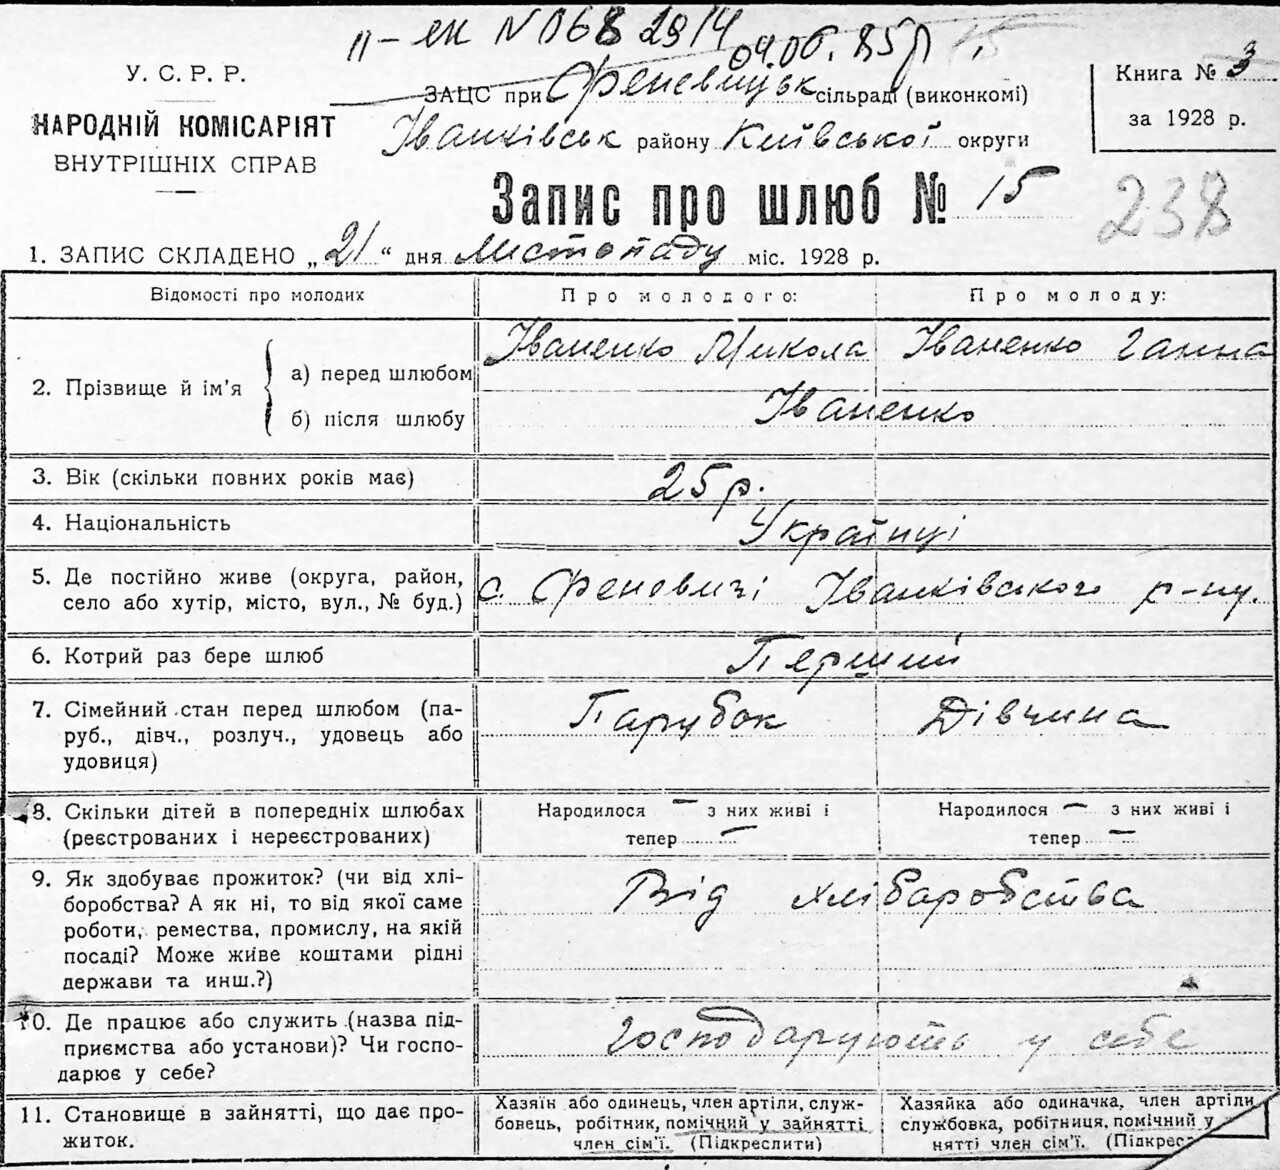 ІІ-ек №068 2914
04.06.85р
У. С. Р. Р.
НАРОДНІЙ КОМІСАРІЯТ
ВНУТРІШНІХ СПРАВ
ЗАЦС при Феневицьк сільраді (виконкомі)
Іванківськ району Київської округи
Книга № 3
за 1928 р.
Запис про шлюб № 15
238
1. ЗАПИС СКЛАДЕНО „21“ дня Листопаду міс. 1928 р.
Відомості про молодих
Про молодого:
Про молоду:
2. Прізвище й ім'я
а) перед шлюбом
Іваненко Микола
Іваненко Ганна
б) після шлюбу
Іваненко
3. Вік (скільки повних років має)
25 р.
4. Національність
Українці
5. Де постійно живе (округа, район,
село або хутір, місто, вул., № буд.)
с. Феневичі Іванківського р-ну.
6. Котрий раз бере шлюб
Перший
7. Сімейний стан перед шлюбом (па-
руб., дівч., розлуч., удовець або
удовиця)
Парубок
Дівчина
8. Скільки дітей в попередніх шлюбах
(реєстрованих і нереєстрованих)
Народилося — з них живі і
тепер —
Народилося — з них живі і
тепер —
9. Як здобуває прожиток? (чи від хлі-
боробства? А як ні, то від якої саме
роботи, ремества, промислу, на якій
посаді? Може живе коштами рідні
держави та инш.?)
Від хлібаробства
10. Де працює або служить (назва під-
приємства або установи)? Чи госпо-
дарює у себе?
Господарують у себе
11. Становище в зайнятті, що дає про-
житок.
Хазяїн або одинець, член артіли, служ-
бовець, робітник, помічний у зайнятті
член сім'ї. (Підкреслити)
Хазяйка або одиначка, член артіли
службовка, робітниця, помічний у
нятті член сім'ї. (Підкрес